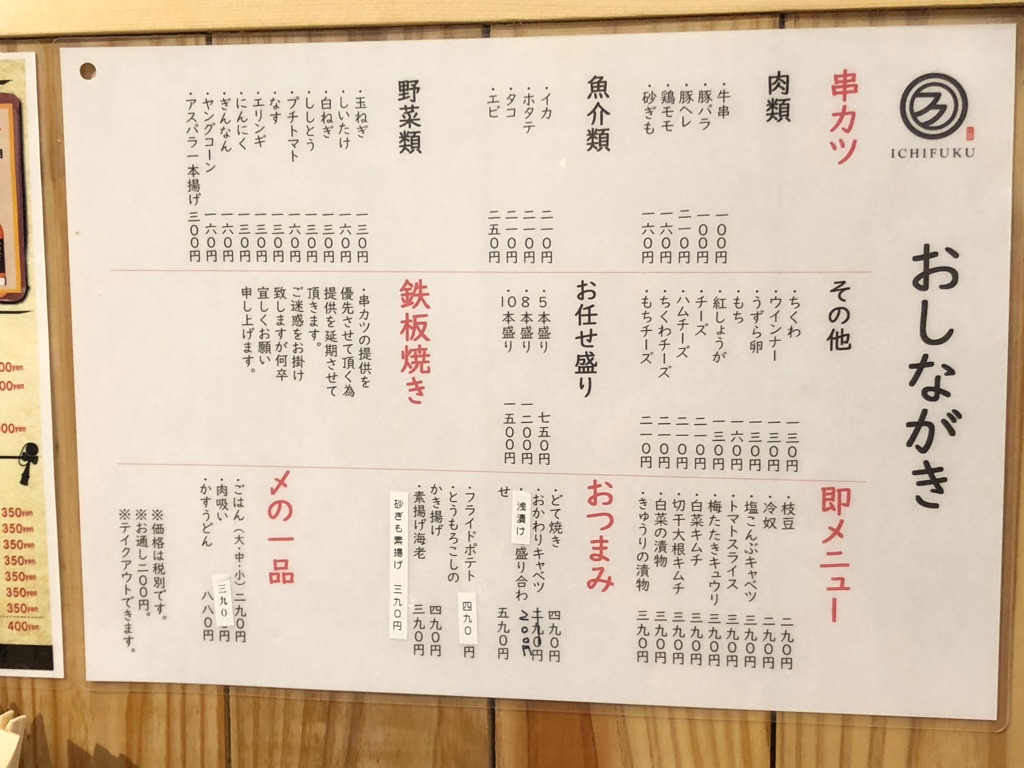 ICHIFUKU
おしながき
串カツ
肉類
・牛串 一〇〇円
・豚バラ 一〇〇円
・豚ヘレ 二一〇円
・鶏モモ 一六〇円
・砂ぎも 一六〇円
魚介類
・イカ 二一〇円
・ホタテ 二一〇円
・タコ 二一〇円
・エビ 二五〇円
野菜類
・玉ねぎ 一三〇円
・しいたけ 一六〇円
・白ねぎ 一三〇円
・ししとう 一三〇円
・プチトマト 一六〇円
・なす 一三〇円
・エリンギ 一三〇円
・にんにく 一三〇円
・ぎんなん 一六〇円
・ヤングコーン 一六〇円
・アスパラ一本揚げ 三〇〇円
その他
・ちくわ 一三〇円
・ウインナー 一三〇円
・うずら卵 一三〇円
・もち 一六〇円
・紅しょうが 一三〇円
・チーズ 二一〇円
・ハムチーズ 二一〇円
・ちくわチーズ 二一〇円
・もちチーズ 二一〇円
お任せ盛り
・5本盛り 七五〇円
・8本盛り 一二〇〇円
・10本盛り 一五〇〇円
鉄板焼き
・串カツの提供を
優先させて頂く為
提供を延期させて
頂きます。
ご迷惑をお掛け
致しますが何卒
宜しくお願い
申し上げます。
即メニュー
・枝豆 二九〇円
・冷奴 二九〇円
・塩こんぶキャベツ 三九〇円
・トマトスライス 三九〇円
・梅たたきキュウリ 三九〇円
・白菜キムチ 三九〇円
・切干大根キムチ 三九〇円
・白菜の漬物 三九〇円
・きゅうりの漬物 三九〇円
おつまみ
・どて焼き 四九〇円
・おかわりキャベツ 200円
・浅漬け 盛り合わ
せ 五九〇円
・フライドポテト 四九0 円
・とうもろこしの
かき揚げ 四九〇円
・素揚げ海老 三九〇円
砂ぎも素揚げ 三九〇円
〆の一品
・ごはん(大・中・小) 二九〇円
・肉吸い 三九0 円
・かすうどん 八八〇円
※価格は税別です。
※お通し二〇〇円。
※テイクアウトできます。
00yen
00yen
00yen
350yen
350yen
350yen
350yen
350yen
350yen
350yen
400yen